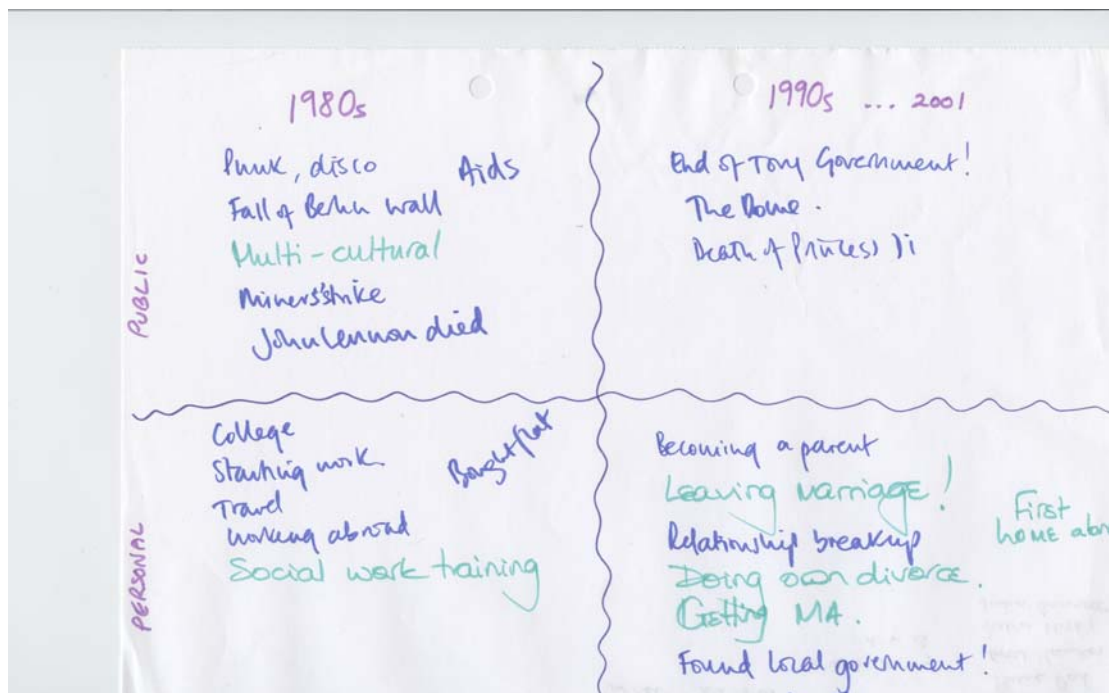 1980s
1990s ... 2001
PUBLIC
Punk, disco
Aids
Fall of Berlin wall
Multi-cultural
Miners' strike
John Lennon died
End of Tory Government!
The Dome.
Death of Princess Di
PERSONAL
College
Starting work
Travel
Working abroad
Social work training
Bought flat
Becoming a parent
Leaving marriage!
Relationship breakup
Doing own divorce.
Getting MA.
Found local government!
First
home